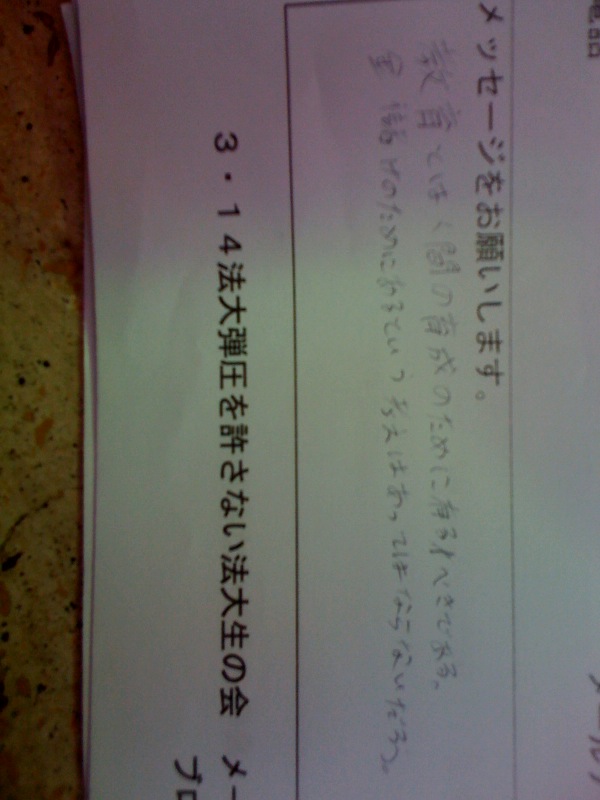 電話 メール
メッセージをお願いします。
教育とは人間の育成のために有るべきである。
金儲けのためにあるという考えはあってはならないだろう。
３・１４法大弾圧を許さない法大生の会 メー
ブロ